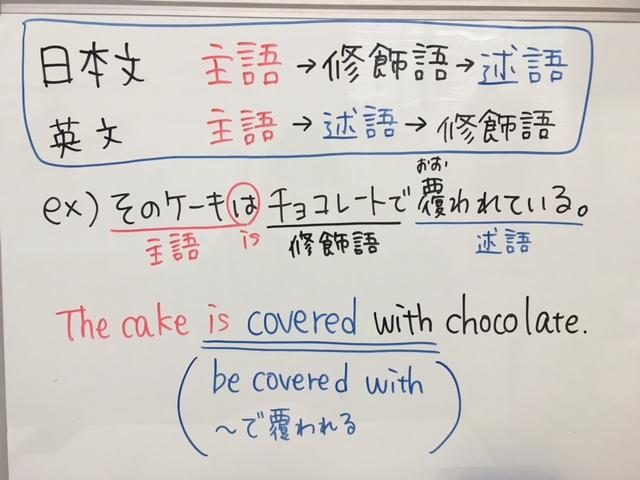 日本文 主語→修飾語→述語
英文 主語→述語→修飾語
おお
ex) そのケーキはチョコレートで覆われている。
主語 is 修飾語 述語
The cake is covered with chocolate.
be covered with
～で覆われる